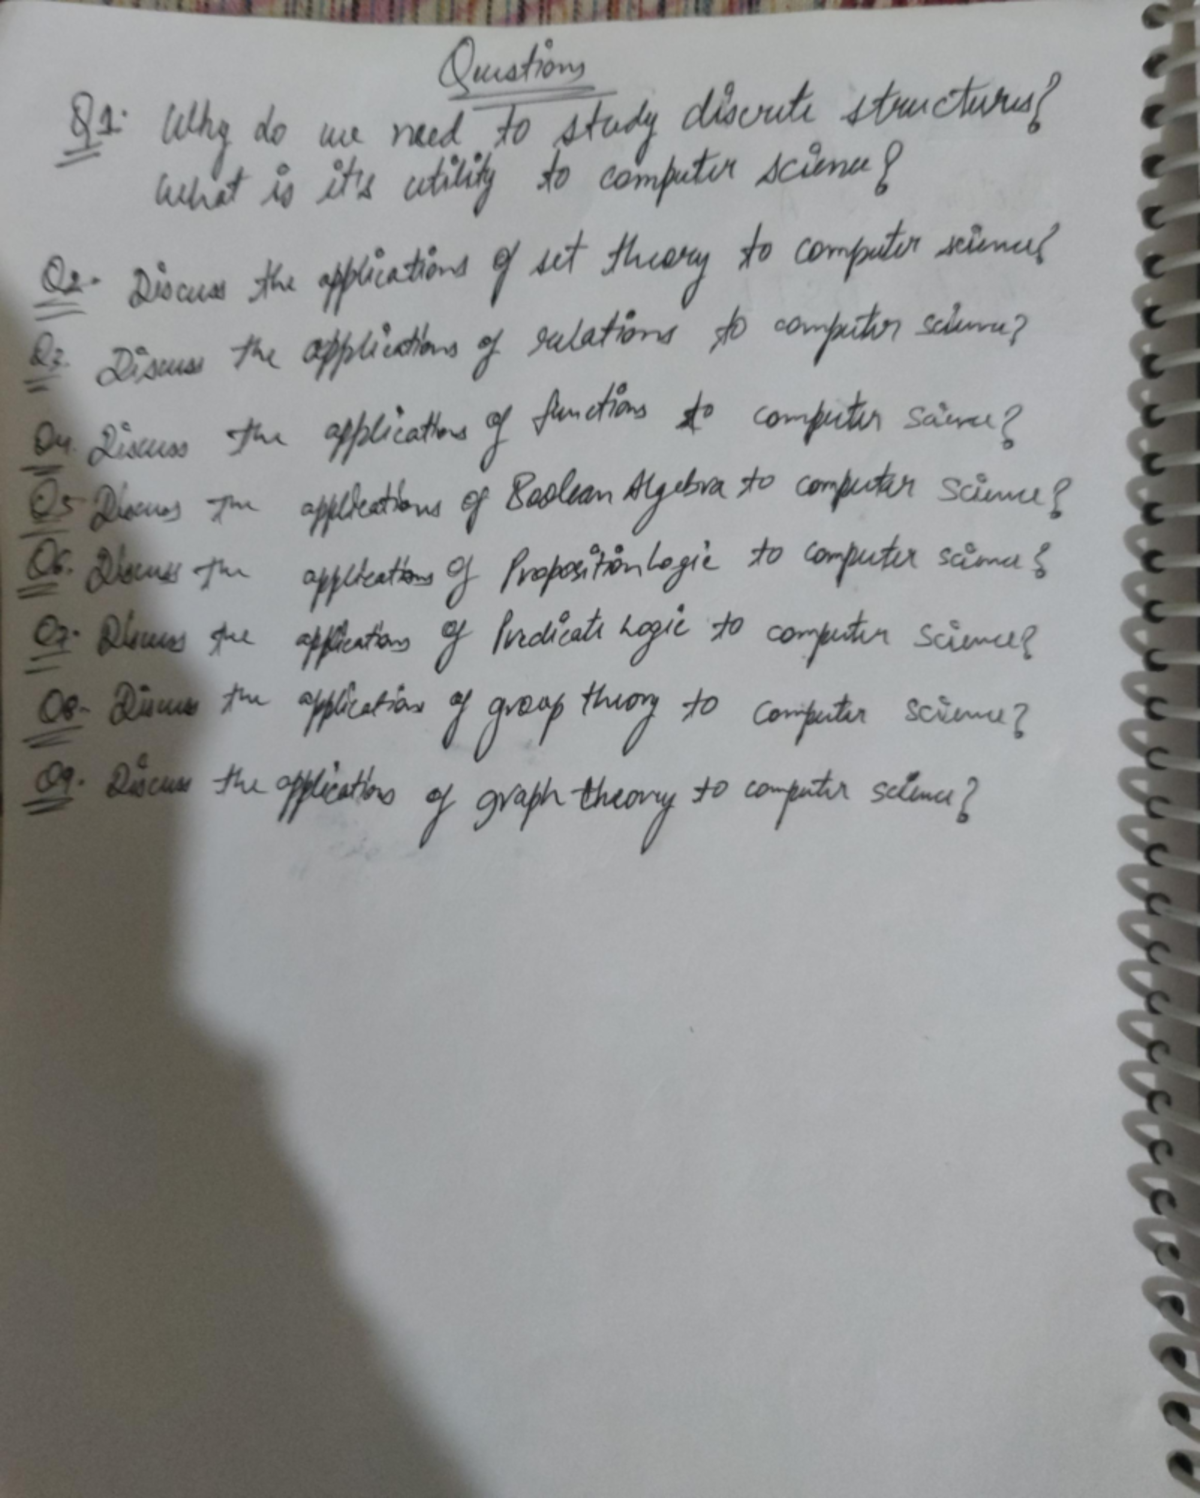 Questions
Q1. Why do we need to study discrete structures?
What is it's utility to computer science?
Q2. Discuss the applications of set theory to computer science?
Q3. Discuss the applications of relations to computer science?
Q4. Discuss the applications of functions to computer science?
Q5 Discuss the applications of Boolean Algebra to computer science?
Q6. Discuss the applications of Proposition Logic to computer science?
Q7. Discuss the applications of Predicate Logic to computer science?
Q8- Discuss the applications of group theory to computer science?
Q9. Discuss the applications of graph theory to computer science?